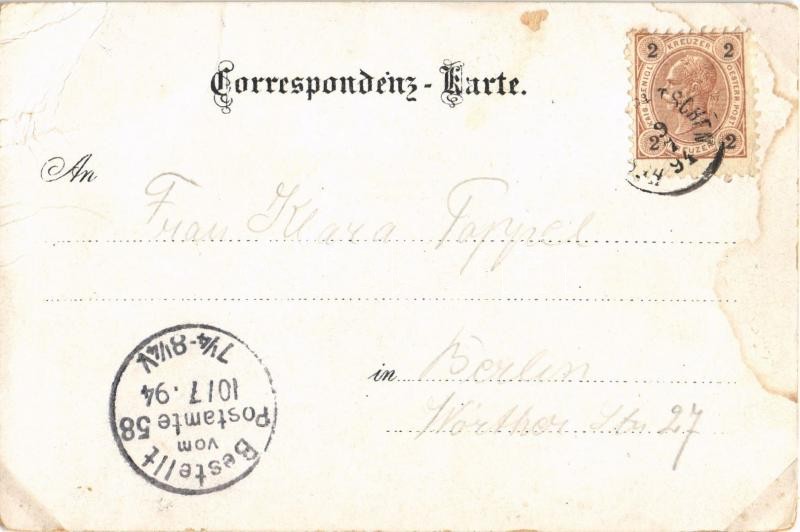 Correspondenz-Karte.
2 KREUZER 2
KAIS. KOENIGL. OESTERR. POST
2 KREUZER 2
9 7 94
An Frau Klara Toppel
in Berlin
Wörther Str 27
Bestellt
vom
Postamte 58
10/7. 94
7¼-8¼N